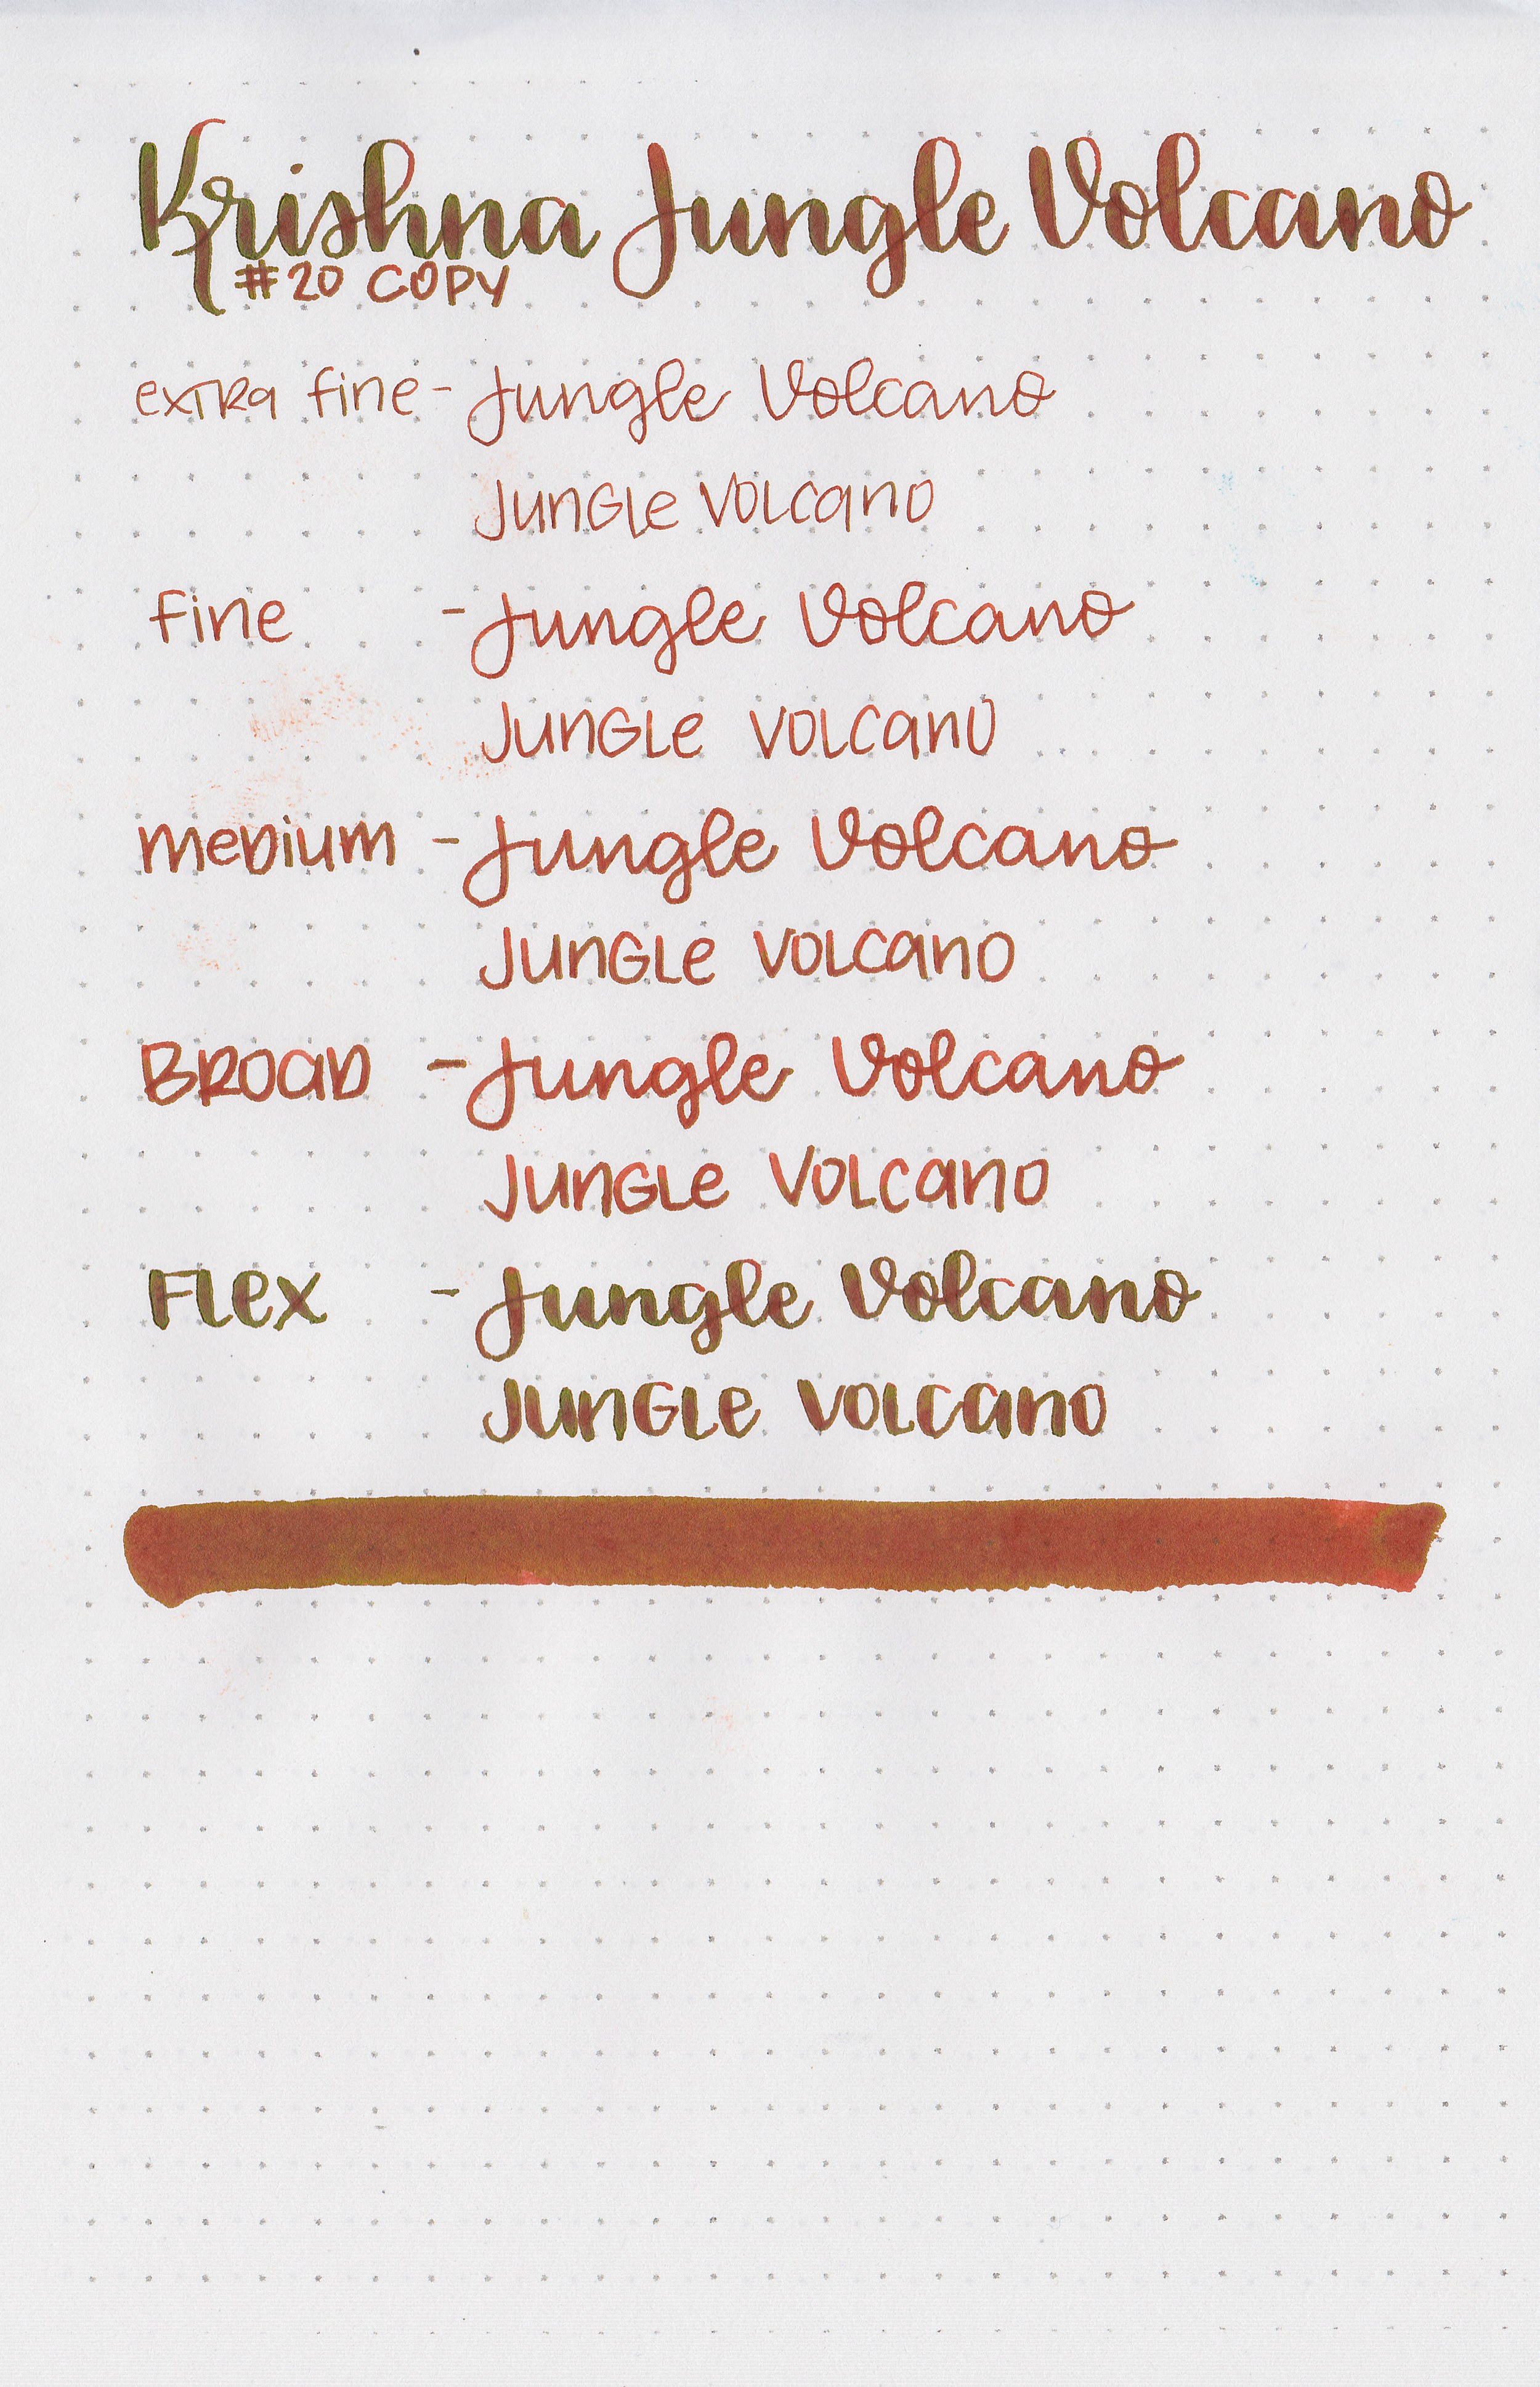 Krishna Jungle Volcano
#20 COPY
extra fine - Jungle Volcano
Jungle Volcano
fine - Jungle Volcano
Jungle Volcano
medium - Jungle Volcano
Jungle Volcano
Broad - Jungle Volcano
Jungle Volcano
Flex - Jungle Volcano
Jungle Volcano